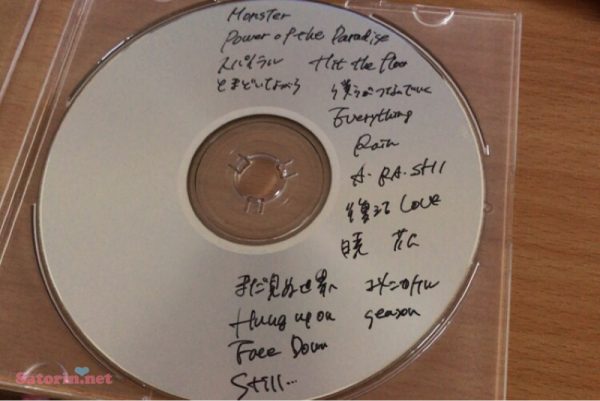 Monster
Power of the Paradise
スパイラル Hit the floo
とまどいながら 僕らがつないでいく
Everything
Rain
A・RA・SHI
復活 Love
暁 花
まだ見ぬ世界へ ユメニカケル
Hung up on season
Face Down
Still...
Satorin.net